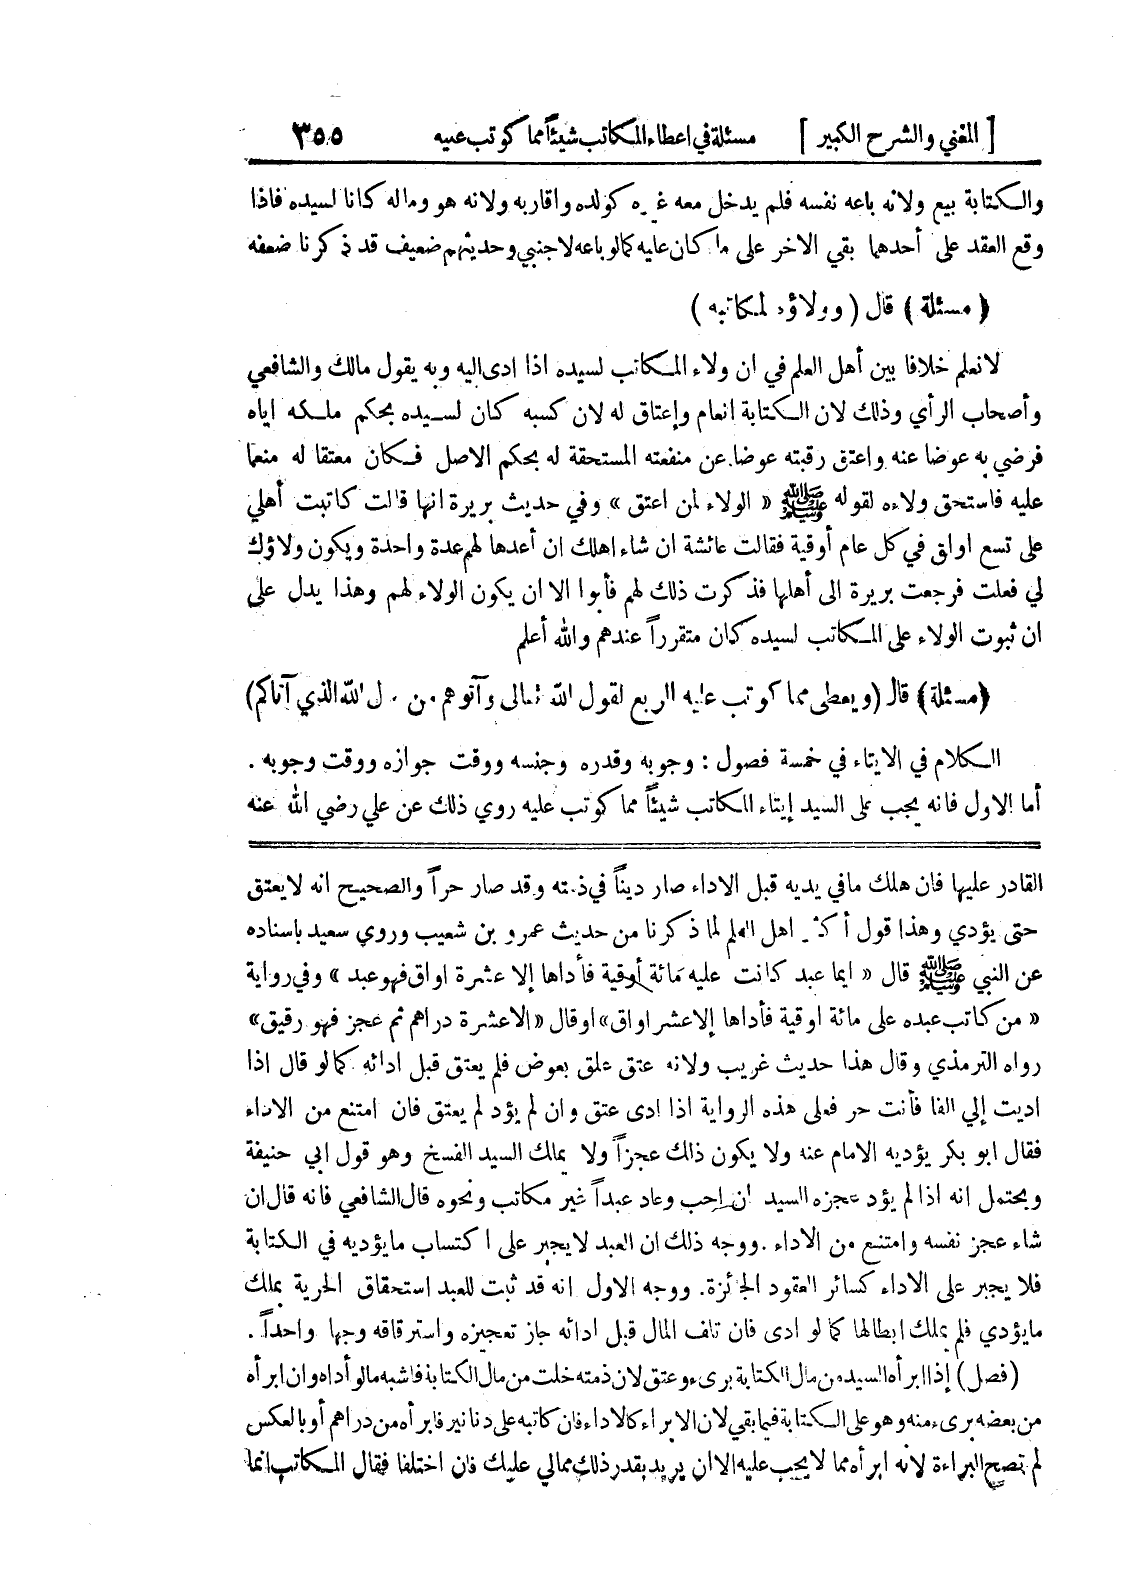 [ المغني والشرح الكبير ] مسئلة في اعطاء المكاتب شيئاً مما كوتب عليه ٣٥٥
والكتابة بيع ولانه باعه نفسه فلم يدخل معه غيره كولده واقاربه ولانه هو وماله كانا لسيده فاذا
وقع العقد على أحدهما بقي الاخر على ما كان عليه كما لو باعه لاجنبي وحديثهم ضعيف قد ذكرنا ضعفه
( مسئلة ) قال ( وولاؤه لمكاتبه )
لا نعلم خلافا بين أهل العلم في ان ولاء المكاتب لسيده اذا ادى اليه وبه يقول مالك والشافعي
وأصحاب الرأي وذلك لان الكتابة انعام وإعتاق له لان كسبه كان لسيده بحكم ملكه اياه
فرضي به عوضا عنه واعتق رقبته عوضا عن منفعته المستحقة له بحكم الاصل فكان معتقا له منعما
عليه فاستحق ولاءه لقوله ﷺ « الولاء لمن اعتق » وفي حديث بريرة انها قالت كاتبت أهلي
على تسع اواق في كل عام أوقية فقالت عائشة ان شاء اهلك ان أعدها لهم عدة واحدة ويكون ولاؤك
لي فعلت فرجعت بريرة الى أهلها فذكرت ذلك لهم فأبوا الا ان يكون الولاء لهم وهذا يدل على
ان ثبوت الولاء على المكاتب لسيده كان متقرراً عندهم والله أعلم
(مسئلة) قال (ويعطى مما كوتب عليه الربع لقول الله تعالى وآتوهم من مال الله الذي آتاكم)
الكلام في الايتاء في خمسة فصول : وجوبه وقدره وجنسه ووقت جوازه ووقت وجوبه .
أما الاول فانه يجب على السيد إيتاء المكاتب شيئاً مما كوتب عليه روي ذلك عن علي رضي الله عنه
القادر عليها فان هلك ما في يديه قبل الاداء صار ديناً في ذمته وقد صار حراً والصحيح انه لا يعتق
حتى يؤدي وهذا قول أكثر اهل العلم لما ذكرنا من حديث عمرو بن شعيب وروي سعيد باسناده
عن النبي ﷺ قال « ايما عبد كانت عليه مائة أوقية فأداها إلا عشرة اواق فهو عبد » وفي رواية
« من كاتب عبده على مائة اوقية فأداها إلا عشر اواق» او قال «الا عشرة دراهم ثم عجز فهو رقيق»
رواه الترمذي وقال هذا حديث غريب ولانه عتق علق بعوض فلم يعتق قبل ادائه كما لو قال اذا
اديت إلي الفا فأنت حر فعلى هذه الرواية اذا ادى عتق وان لم يؤد لم يعتق فان امتنع من الاداء
فقال ابو بكر يؤديه الامام عنه ولا يكون ذلك عجزاً ولا يملك السيد الفسخ وهو قول ابي حنيفة
ويحتمل انه اذا لم يؤد عجزه السيد ان احب وعاد عبداً غير مكاتب ونحوه قال الشافعي فانه قال ان
شاء عجز نفسه وامتنع من الاداء . ووجه ذلك ان العبد لا يجبر على اكتساب ما يؤديه في الكتابة
فلا يجبر على الاداء كسائر العقود الجائزة. ووجه الاول انه قد ثبت للعبد استحقاق الحرية بملك
ما يؤدي فلم يملك ابطالها كما لو ادى فان تلف المال قبل ادائه جاز تعجيزه واسترقاقه وجها واحداً .
(فصل) إذا ابرأه السيد من مال الكتابة برىء وعتق لان ذمته خلت من مال الكتابة فاشبه ما لو أداه وان ابرأه
من بعضه برىء منه وهو على الكتابة فيما بقي لان الابراء كالاداء فان كاتبه على دنانير فابرأه من دراهم أو بالعكس
لم تصح البراءة لانه ابرأه مما لا يجب عليه الا ان يريد بقدر ذلك مما لي عليك فان اختلفا فقال المكاتب انما